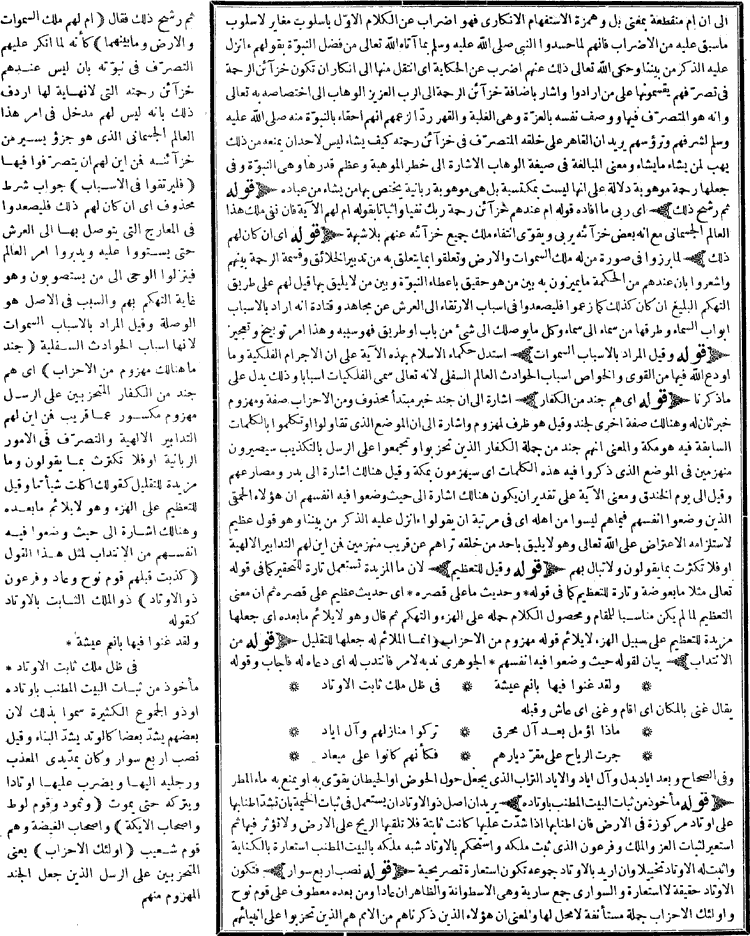 الى ان ام منقطعة بمعنى بل وهمزة الاستفهام الانكارى فهو اضراب عن الكلام الاول باسلوب مغاير لاسلوب
ماسبق عليه من الاضراب فانهم لما حسدوا النبى صلى الله عليه وسلم بما آتاه الله تعالى من فضل النبوة بقولهم ءانزل
عليه الذكر من بيننا وحكى الله تعالى ذلك عنهم اضرب عن الحكاية اى انتقل منها الى انكار ان تكون خزآئن الرحمة
فى تصرفهم يقسمونها على من ارادوا واشار باضافة خزآئن الرحمة الى الرب العزيز الوهاب الى اختصاصه به تعالى
وانه هو المتصرف فيها ووصف نفسه بالعزة وهى الغلبة والقهر ردا لزعمهم انهم احقاء بالنبوة منه صلى الله عليه
وسلم لشرفهم وترؤسهم يريد ان القاهر على خلقه المتصرف فى خزآئن رحمته كيف يشاء ليس لاحد ان يمنعه من ذلك
يهب لمن يشاء مايشاء ومعنى المبالغة فى صيغة الوهاب الاشارة الى خطر الموهبة وعظم قدرها وهى النبوة وفى
جعلها رحمة موهوبة دلالة على انها ليست بمكتسبة بل هى موهوبة ربانية يختص بها من يشاء من عباده قوله
ثم رشح ذلك اى ربى ما افاده قوله ام عندهم خزآئن رحمة ربك نفيا واثباتا بقوله ام لهم الآية فان نفى ملك هذا
العالم الجسمانى مع انه بعض خزآئنه يربى ويقوى انتفاء ملك جميع خزآئنه عنهم بلاشبهة قوله اى ان كان لهم
ذلك لما برزوا فى صورة من له ملك السموات والارض وتعلقوا بما يتعلق به من تدبير الخلائق وقسمة الرحمة بينهم
واشعروا بان عندهم من الحكمة مايميزون به بين من هو حقيق باعطاء النبوة وبين من لايليق بها قيل لهم على طريق
التهكم البليغ ان كان كذلك كما زعموا فليصعدوا فى اسباب الارتقاء الى العرش عن مجاهد وقتادة انه اراد بالاسباب
ابواب السماء وطرقها من سماء الى سماء وكل مايوصلك الى شئ من باب او طريق فهو سببه وهذا امر توبيخ وتعجيز
قوله وقيل المراد بالاسباب السموات استدل حكماء الاسلام بهذه الآية على ان الاجرام الفلكية وما
اودع الله فيها من القوى والخواص اسباب الحوادث العالم السفلى لانه تعالى سمى الفلكيات اسبابا وذلك يدل على
ماذكرنا قوله اى هم جند من الكفار اشارة الى ان جند خبر مبتدأ محذوف ومن الاحزاب صفة ومهزوم
خبر ثان له وهنالك صفة اخرى لجند وقيل هو ظرف لمهزوم واشارة الى ان الموضع الذى تقاولوا وتكلموا بالكلمات
السابقة فيه هو مكة والمعنى انهم جند من جملة الكفار الذين تحزبوا وتجمعوا على الرسل بالتكذيب سيصيرون
منهزمين فى الموضع الذى ذكروا فيه هذه الكلمات اى سيهزمون بمكة وقيل هنالك اشارة الى بدر ومصارعهم
وقيل الى يوم الخندق ومعنى الآية على تقدير ان يكون هنالك اشارة الى حيث وضعوا فيه انفسهم ان هؤلاء الحمقى
الذين وضعوا انفسهم فيما هم ليسوا من اهله اى فى مرتبة ان يقولوا ءانزل عليه الذكر من بيننا وهو قول عظيم
لاستلزامه الاعتراض على الله تعالى وهو لايليق باحد من خلقه تراهم عن قريب منهزمين فن اين لهم التدابير الالهية
او فلا تكترث بما يقولون ولاتبال بهم قوله وقيل للتعظيم لان ما المزيدة تستعمل تارة للتحقير كما فى قوله
تعالى مثلا مابعوضة وتارة للتعظيم كما فى قوله * وحديث ما على قصره * اى حديث عظيم على قصره ثم ان معنى
التعظيم لما لم يكن مناسبا للمقام ومحصول الكلام حمله على الهزء والتهكم ثم قال وهو لايلائم مابعده اى جعلها
مزيدة للتعظيم على سبيل الهزء لايلائم قوله مهزوم من الاحزاب وانما الملائم له جعلها للتقليل قوله من
الانتداب بيان لقوله حيث وضعوا فيه انفسهم * الجوهرى ندبه لامر فانتدب له اى دعاه له فاجاب وقوله
* ولقد غنوا فيها بانعم عيشة * فى ظل ملك ثابت الاوتاد *
يقال غنى بالمكان اى اقام وغنى اى عاش وقبله
* ماذا اؤمل بعد آل محرق * تركوا منازلهم وآل اياد *
* جرت الرياح على مقر ديارهم * فكأنهم كانوا على ميعاد *
وفى الصحاح وبعد اياد بدل وآل اياد والاياد التراب الذى يجعل حول الحوض او الحيطان يقوى به او يمنع به ماء المطر
قوله مأخوذ من ثبات البيت المطنب باوتاده يريد ان اصل ذو الاوتاد ان يستعمل فى ثبات الخيمة بان تشد اطنابها
على اوتاد مركوزة فى الارض فان اطنابها اذا شدت عليها كانت ثابتة فلا تلقيها الريح على الارض ولاتؤثر فيها ثم
استعير لثبات العز والملك وفرعون الذى ثبت ملكه واستحكم بالاوتاد شبه ملكه بالبيت المطنب استعارة بالكناية
واثبت له الاوتاد تخييلا وان اريد بالاوتاد جموعه تكون استعارة تصريحية قوله نصب اربع سوار فتكون
الاوتاد حقيقة لااستعارة والسوارى جمع سارية وهى الاسطوانة والظاهر ان عادا ومن بعده معطوف على قوم نوح
واولئك الاحزاب جملة مستأنفة لامحل لها والمعنى ان هؤلاء الذين ذكرناهم من الامم هم الذين تحزبوا على انبيائهم
ثم رشح ذلك فقال ( ام لهم ملك السموات
والارض ومابينهما ) كأنه لما انكر عليهم
التصرف فى نبوته بان ليس عندهم
خزآئن رحمته التى لانهاية لها اردف
ذلك بانه ليس لهم مدخل فى امر هذا
العالم الجسمانى الذى هو جزؤ يسير من
خزآئنه فن اين لهم ان يتصرفوا فيها
( فليرتقوا فى الاسباب ) جواب شرط
محذوف اى ان كان لهم ذلك فليصعدوا
فى المعارج التى يتوصل بها الى العرش
حتى يستووا عليه ويدبروا امر العالم
فينزلوا الوحى الى من يستصوبون وهو
غاية التهكم بهم والسبب فى الاصل هو
الوصلة وقيل المراد بالاسباب السموات
لانها اسباب الحوادث السفلية ( جند
ما هنالك مهزوم من الاحزاب ) اى هم
جند من الكفار المتحزبين على الرسل
مهزوم مكسور عما قريب فن اين لهم
التدابير الالهية والتصرف فى الامور
الربانية اوفلا تكترث بما يقولون وما
مزيدة للتقليل كقولك اكلت شيأ ما وقيل
للتعظيم على الهزء وهو لايلائم مابعده
وهنالك اشارة الى حيث وضعوا فيه
انفسهم من الانتداب لمثل هذا القول
( كذبت قبلهم قوم نوح وعاد وفرعون
ذو الاوتاد ) ذو الملك الثابت بالاوتاد
كقوله
ولقد غنوا فيها بانعم عيشة *
فى ظل ملك ثابت الاوتاد *
مأخوذ من ثبات البيت المطنب باوتاده
اوذو الجموع الكثيرة سموا بذلك لان
بعضهم يشد بعضا كالوتد يشد البناء وقيل
نصب اربع سوار وكان يمد يدى المعذب
ورجليه اليها ويضرب عليها اوتادا
ويتركه حتى يموت ( وثمود وقوم لوط
واصحاب الايكة ) واصحاب الغيضة وهم
قوم شعيب ( اولئك الاحزاب ) يعنى
المتحزبين على الرسل الذين جعل الجند
المهزوم منهم